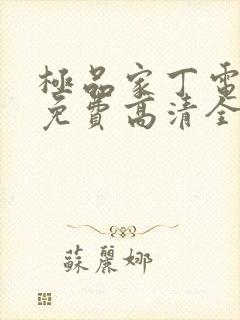 極品家丁電
免費高清全
蘇麗娜